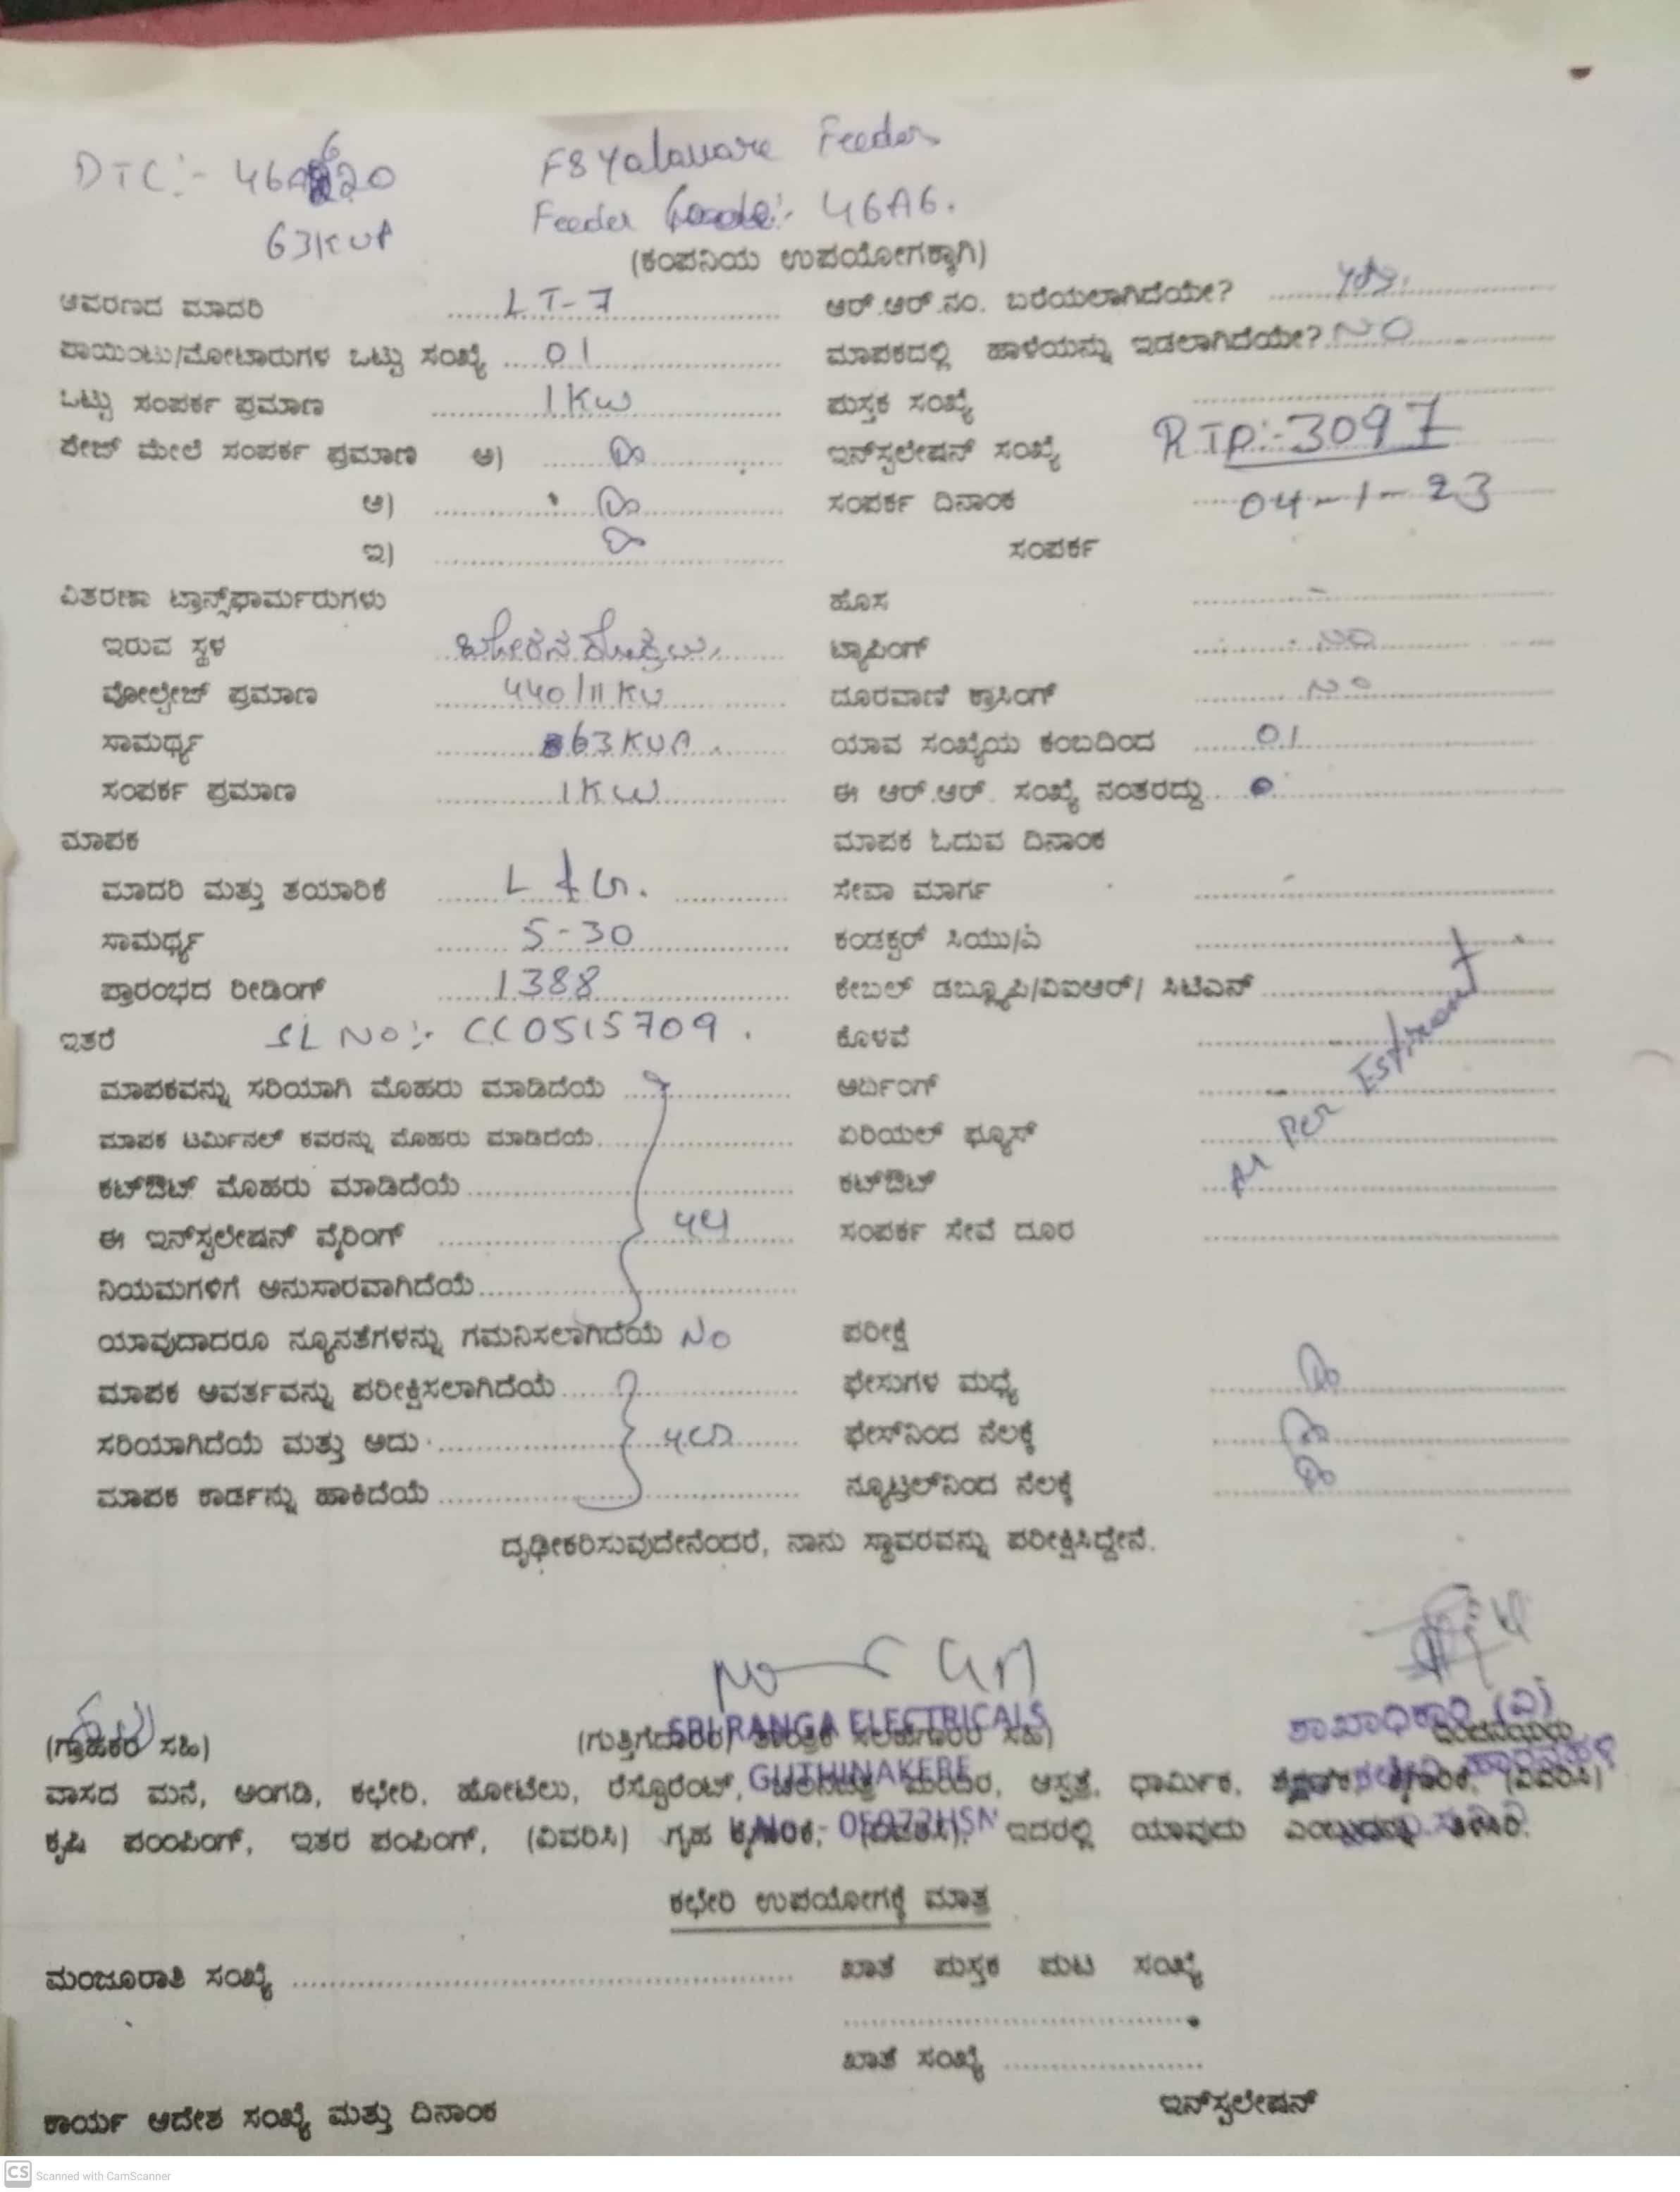 DTC:- 46A620 F8 Yalavare Feeder
63KVA Feeder Code:- 46A6.
(ಕಂಪನಿಯ ಉಪಯೋಗಕ್ಕಾಗಿ)
ಆವರಣದ ಮಾದರಿ LT-7 ಆರ್.ಆರ್.ನಂ. ಬರೆಯಲಾಗಿದೆಯೇ? yes.
ಪಾಯಿಂಟು/ಮೋಟಾರುಗಳ ಒಟ್ಟು ಸಂಖ್ಯೆ 01 ಮಾಪಕದಲ್ಲಿ ಹಾಳೆಯನ್ನು ಇಡಲಾಗಿದೆಯೇ? NO
ಒಟ್ಟು ಸಂಪರ್ಕ ಪ್ರಮಾಣ 1KW ಪುಸ್ತಕ ಸಂಖ್ಯೆ
ಫೇಜ್ ಮೇಲೆ ಸಂಪರ್ಕ ಪ್ರಮಾಣ ಅ) ಇನ್‌ಸ್ಟಲೇಷನ್ ಸಂಖ್ಯೆ RTP:-3097
ಆ) ಸಂಪರ್ಕ ದಿನಾಂಕ 04-1-23
ಇ) ಸಂಪರ್ಕ
ವಿತರಣಾ ಟ್ರಾನ್ಸ್‌ಫಾರ್ಮರುಗಳು ಹೊಸ -
ಇರುವ ಸ್ಥಳ ಟ್ಯಾಪಿಂಗ್ NO
ವೋಲ್ಟೇಜ್ ಪ್ರಮಾಣ 440/11KV ದೂರವಾಣಿ ಕ್ರಾಸಿಂಗ್ NO
ಸಾಮರ್ಥ್ಯ 63KVA. ಯಾವ ಸಂಖ್ಯೆಯ ಕಂಬದಿಂದ 01
ಸಂಪರ್ಕ ಪ್ರಮಾಣ 1KW ಈ ಆರ್.ಆರ್. ಸಂಖ್ಯೆ ನಂತರದ್ದು
ಮಾಪಕ ಮಾಪಕ ಓದುವ ದಿನಾಂಕ
ಮಾದರಿ ಮತ್ತು ತಯಾರಿಕೆ L&G. ಸೇವಾ ಮಾರ್ಗ
ಸಾಮರ್ಥ್ಯ 5-30 ಕಂಡಕ್ಟರ್ ಸಿಯು/ಎ
ಪ್ರಾರಂಭದ ರೀಡಿಂಗ್ 1388 ಕೇಬಲ್ ಡಬ್ಲ್ಯೂಪಿ/ವಿಐಆರ್/ ಸಿಟಿಎಸ್
ಇತರೆ SL NO:- CC0515709. ಕೊಳವೆ
ಮಾಪಕವನ್ನು ಸರಿಯಾಗಿ ಮೊಹರು ಮಾಡಿದೆಯೆ ಅರ್ಥಿಂಗ್
ಮಾಪಕ ಟರ್ಮಿನಲ್ ಕವರನ್ನು ಮೊಹರು ಮಾಡಿದೆಯೆ ಏರಿಯಲ್ ಫ್ಯೂಸ್ As Per Estiment
ಕಟ್‌ಔಟ್ ಮೊಹರು ಮಾಡಿದೆಯೆ ಕಟ್‌ಔಟ್
ಈ ಇನ್‌ಸ್ಟಲೇಷನ್ ವೈರಿಂಗ್ yes ಸಂಪರ್ಕ ಸೇವೆ ದೂರ
ನಿಯಮಗಳಿಗೆ ಅನುಸಾರವಾಗಿದೆಯೆ
ಯಾವುದಾದರೂ ನ್ಯೂನತೆಗಳನ್ನು ಗಮನಿಸಲಾಗಿದೆಯೆ No ಪರೀಕ್ಷೆ
ಮಾಪಕ ಆವರ್ತವನ್ನು ಪರೀಕ್ಷಿಸಲಾಗಿದೆಯೆ ಫೇಸುಗಳ ಮಧ್ಯೆ
ಸರಿಯಾಗಿದೆಯೆ ಮತ್ತು ಅದು yes ಫೇಸ್‌ನಿಂದ ನೆಲಕ್ಕೆ
ಮಾಪಕ ಕಾರ್ಡನ್ನು ಹಾಕಿದೆಯೆ ನ್ಯೂಟ್ರಲ್‌ನಿಂದ ನೆಲಕ್ಕೆ
ದೃಢೀಕರಿಸುವುದೇನೆಂದರೆ, ನಾನು ಸ್ಥಾವರವನ್ನು ಪರೀಕ್ಷಿಸಿದ್ದೇನೆ.
SRI RANGA ELECTRICALS ಶಾಖಾಧಿಕಾರಿ (ವಿ)
(ಗ್ರಾಹಕರ ಸಹಿ) (ಗುತ್ತಿಗೆದಾರರ/ ತಾಂತ್ರಿಕ ಸಲಹೆಗಾರರ ಸಹಿ)
GUTHINAKERE
ವಾಸದ ಮನೆ, ಅಂಗಡಿ, ಕಛೇರಿ, ಹೋಟೆಲು, ರೆಸ್ಟೊರೆಂಟ್, ಚಲನಚಿತ್ರ ಮಂದಿರ, ಆಸ್ಪತ್ರೆ, ಧಾರ್ಮಿಕ, ಶೈಕ್ಷಣಿಕ, ಕೈಗಾರಿಕೆ, (ವಿವರಿಸಿ)
ಕೃಷಿ ಪಂಪಿಂಗ್, ಇತರ ಪಂಪಿಂಗ್, (ವಿವರಿಸಿ) ಗೃಹ ಕೈಗಾರಿಕೆ, (ವಿವರಿಸಿ), ಇದರಲ್ಲಿ ಯಾವುದು ಎಂಬುದನ್ನು ತಿಳಿಸಿರಿ.
ಕಛೇರಿ ಉಪಯೋಗಕ್ಕೆ ಮಾತ್ರ
ಮಂಜೂರಾತಿ ಸಂಖ್ಯೆ ಖಾತೆ ಪುಸ್ತಕ ಪುಟ ಸಂಖ್ಯೆ
ಖಾತೆ ಸಂಖ್ಯೆ
ಕಾರ್ಯ ಆದೇಶ ಸಂಖ್ಯೆ ಮತ್ತು ದಿನಾಂಕ ಇನ್‌ಸ್ಟಲೇಷನ್
CS Scanned with CamScanner